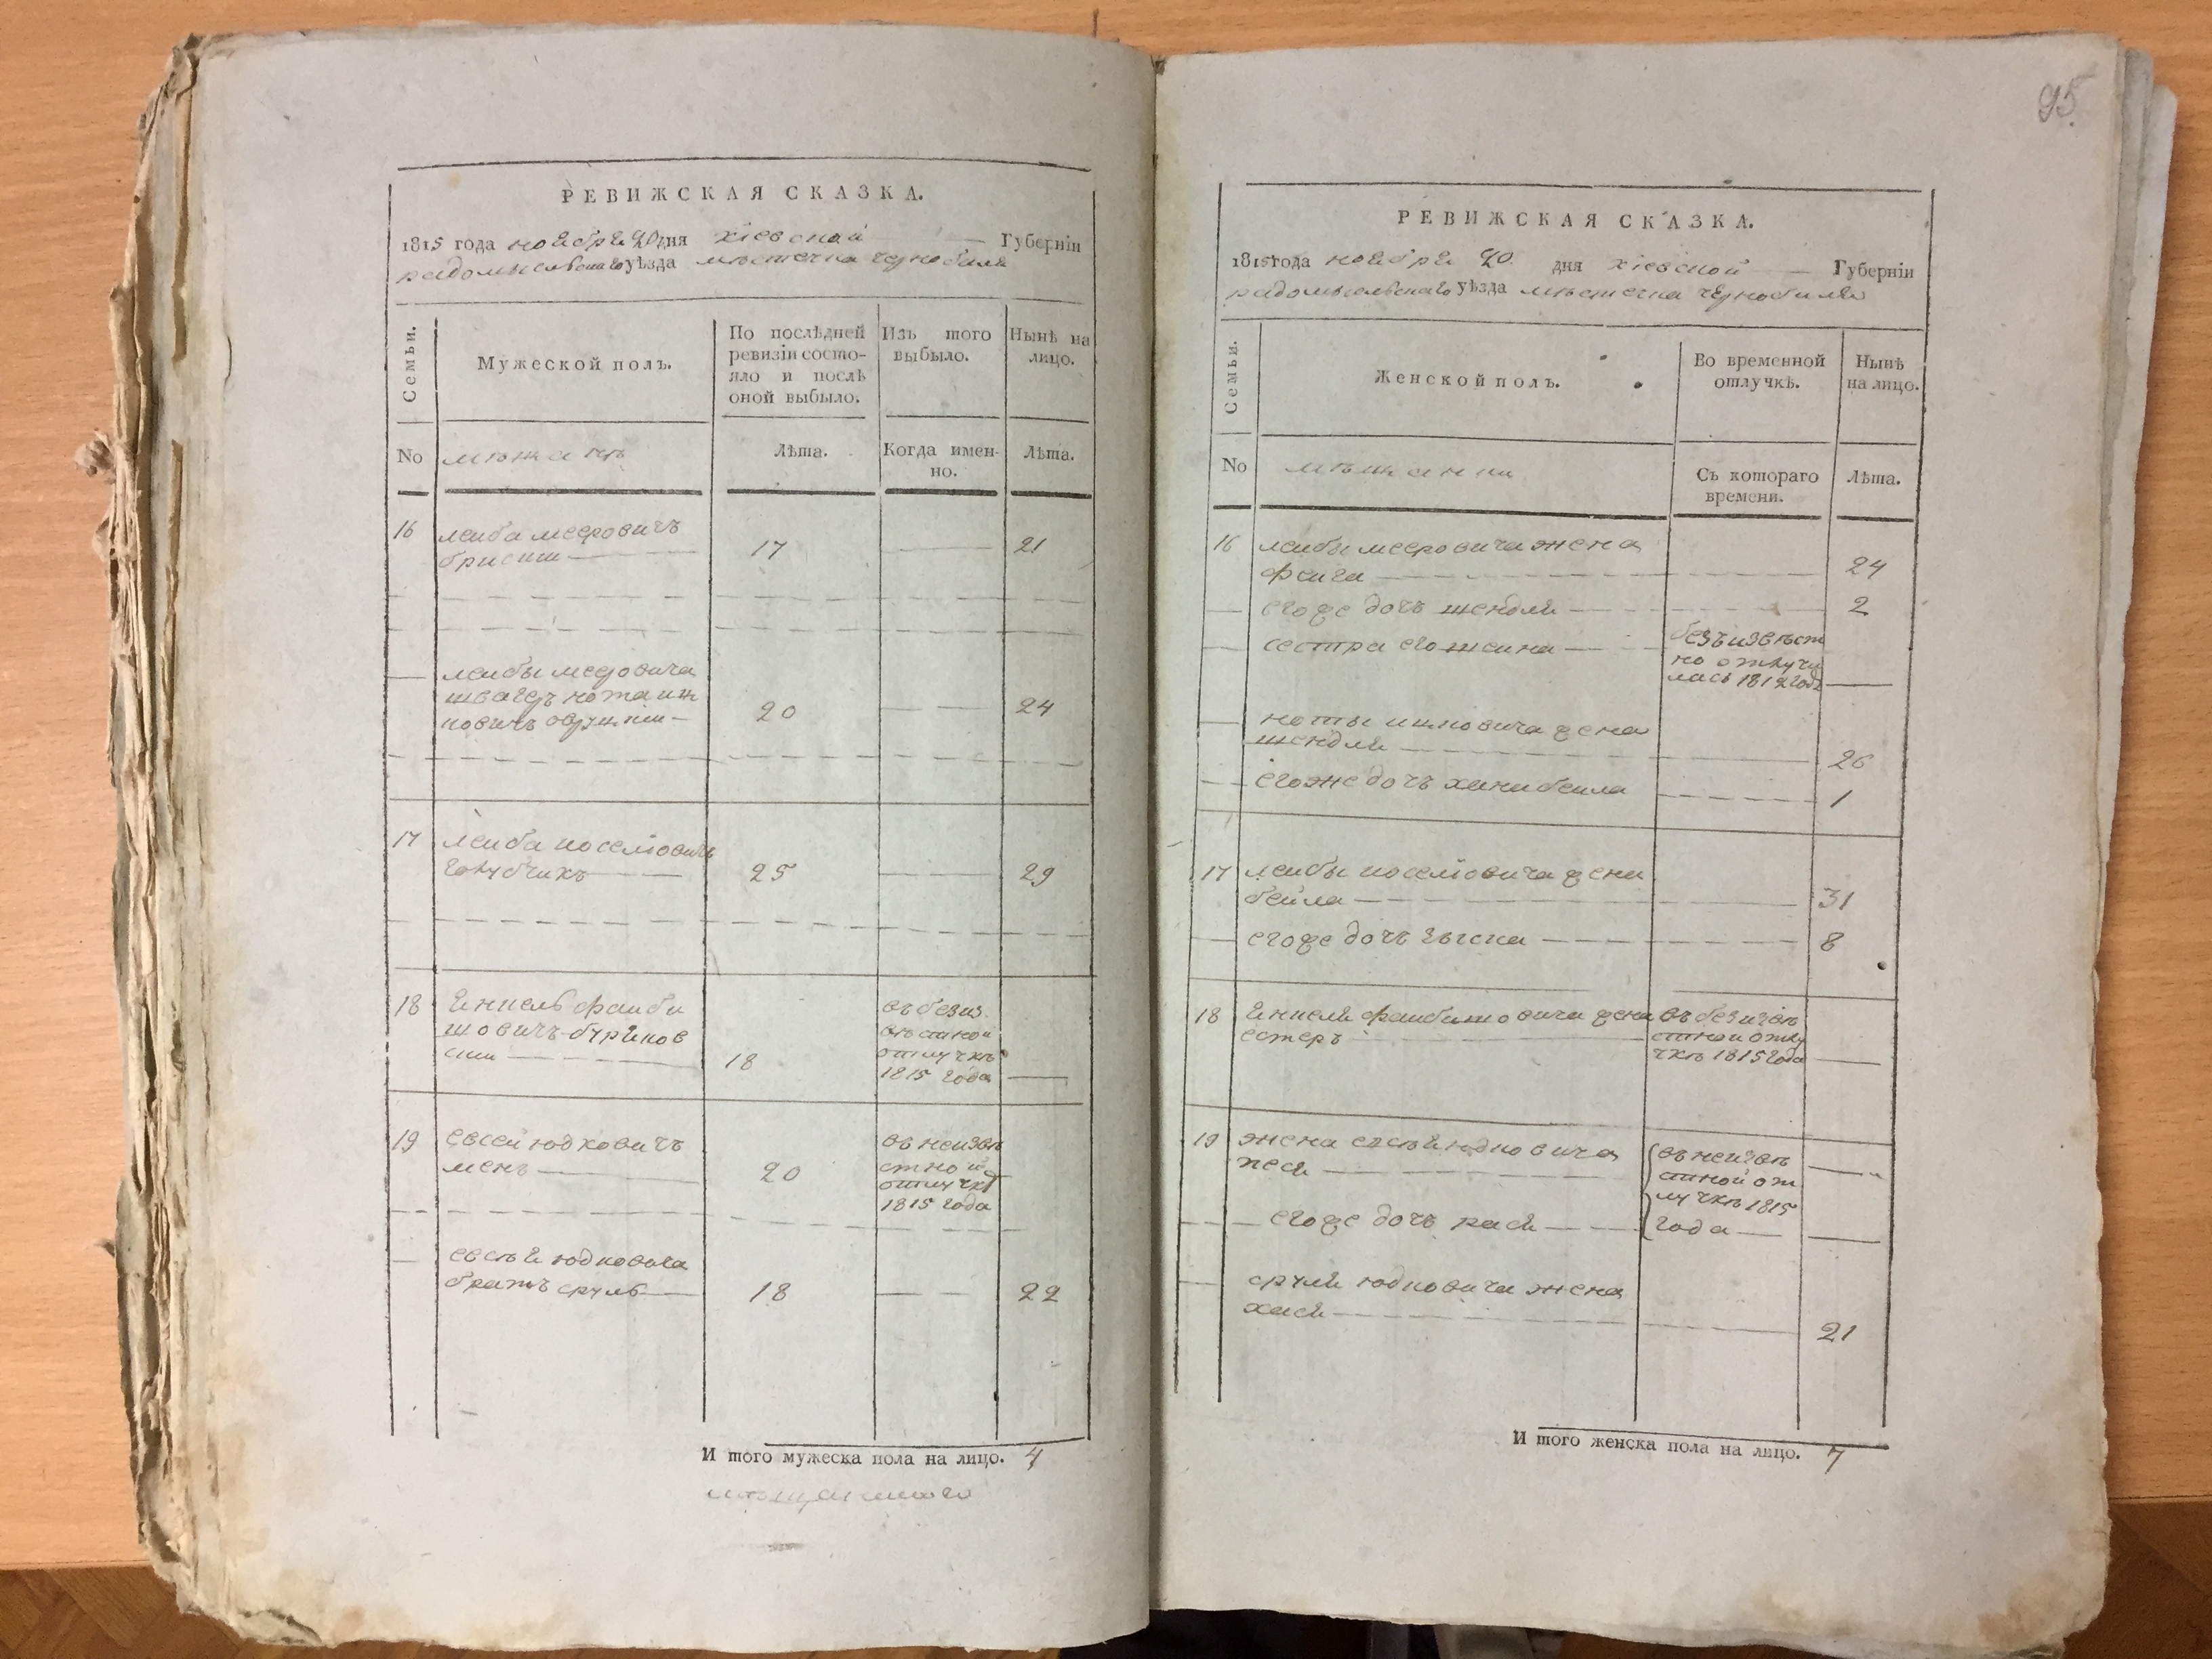 РЕВИЖСКАЯ СКАЗКА.
1815 года ноября 20 дня кіевской Губерніи
радомысльскаго уѣзда мѣстечка чернобиля
Семьи.
Мужеской полъ.
По послѣдней
ревизіи состо-
яло и послѣ
оной выбыло.
Изъ того
выбыло.
Нынѣ на
лицо.
No
Лѣта.
Когда имен-
но.
Лѣта.
16 леиба мееровичъ
17 21
леибы мееровича
швагеръ нота иц
ковичъ
20 24
17 леиба иоселіовичъ
голубчикъ 25 29
18 янкель фаиби
шовичъ буряков
ски 18
въ безиз
вѣстной
отлучкѣ
1815 года
19 евсеи юдковичъ
менъ 20
въ неизвѣ
стной
отлучкѣ
1815 года
евсѣя юдковича
братъ сруль 18 22
И того мужеска пола на лицо. 4
95.
РЕВИЖСКАЯ СКАЗКА.
1815 года ноября 20 дня кіевской Губерніи
радомысльскаго уѣзда мѣстечка чернобиля
Семьи.
Женской полъ.
Во временной
отлучкѣ.
Нынѣ
на лицо.
No
Съ котораго
времени.
Лѣта.
16 леибы мееровича жена
феига 24
егоже дочъ шендля 2
сестра его
безъизвѣст
но отлучи
лась 1812 года
ноты ицковича жена
шендля 26
егоже дочъ беила 1
17 леибы иоселіовича жена
бейла 31
егоже дочъ 8
18 янкеля фаибишовича жена
естеръ
въ безизвѣ
стной отлу
чкѣ 1815 года
19 жена евсѣя юдковича
песя
въ неизвѣ
стной от
лучкѣ 1815
года
егоже дочъ рася
сруля юдковича жена
хася 21
И того женска пола на лицо. 7